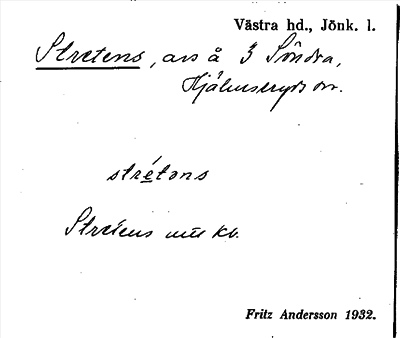 Västra hd., Jönk. l.
Stretens, avs å 3 Södra,
Hjälmseryds sn.
strétəns
Stretens
Fritz Andersson 1932.